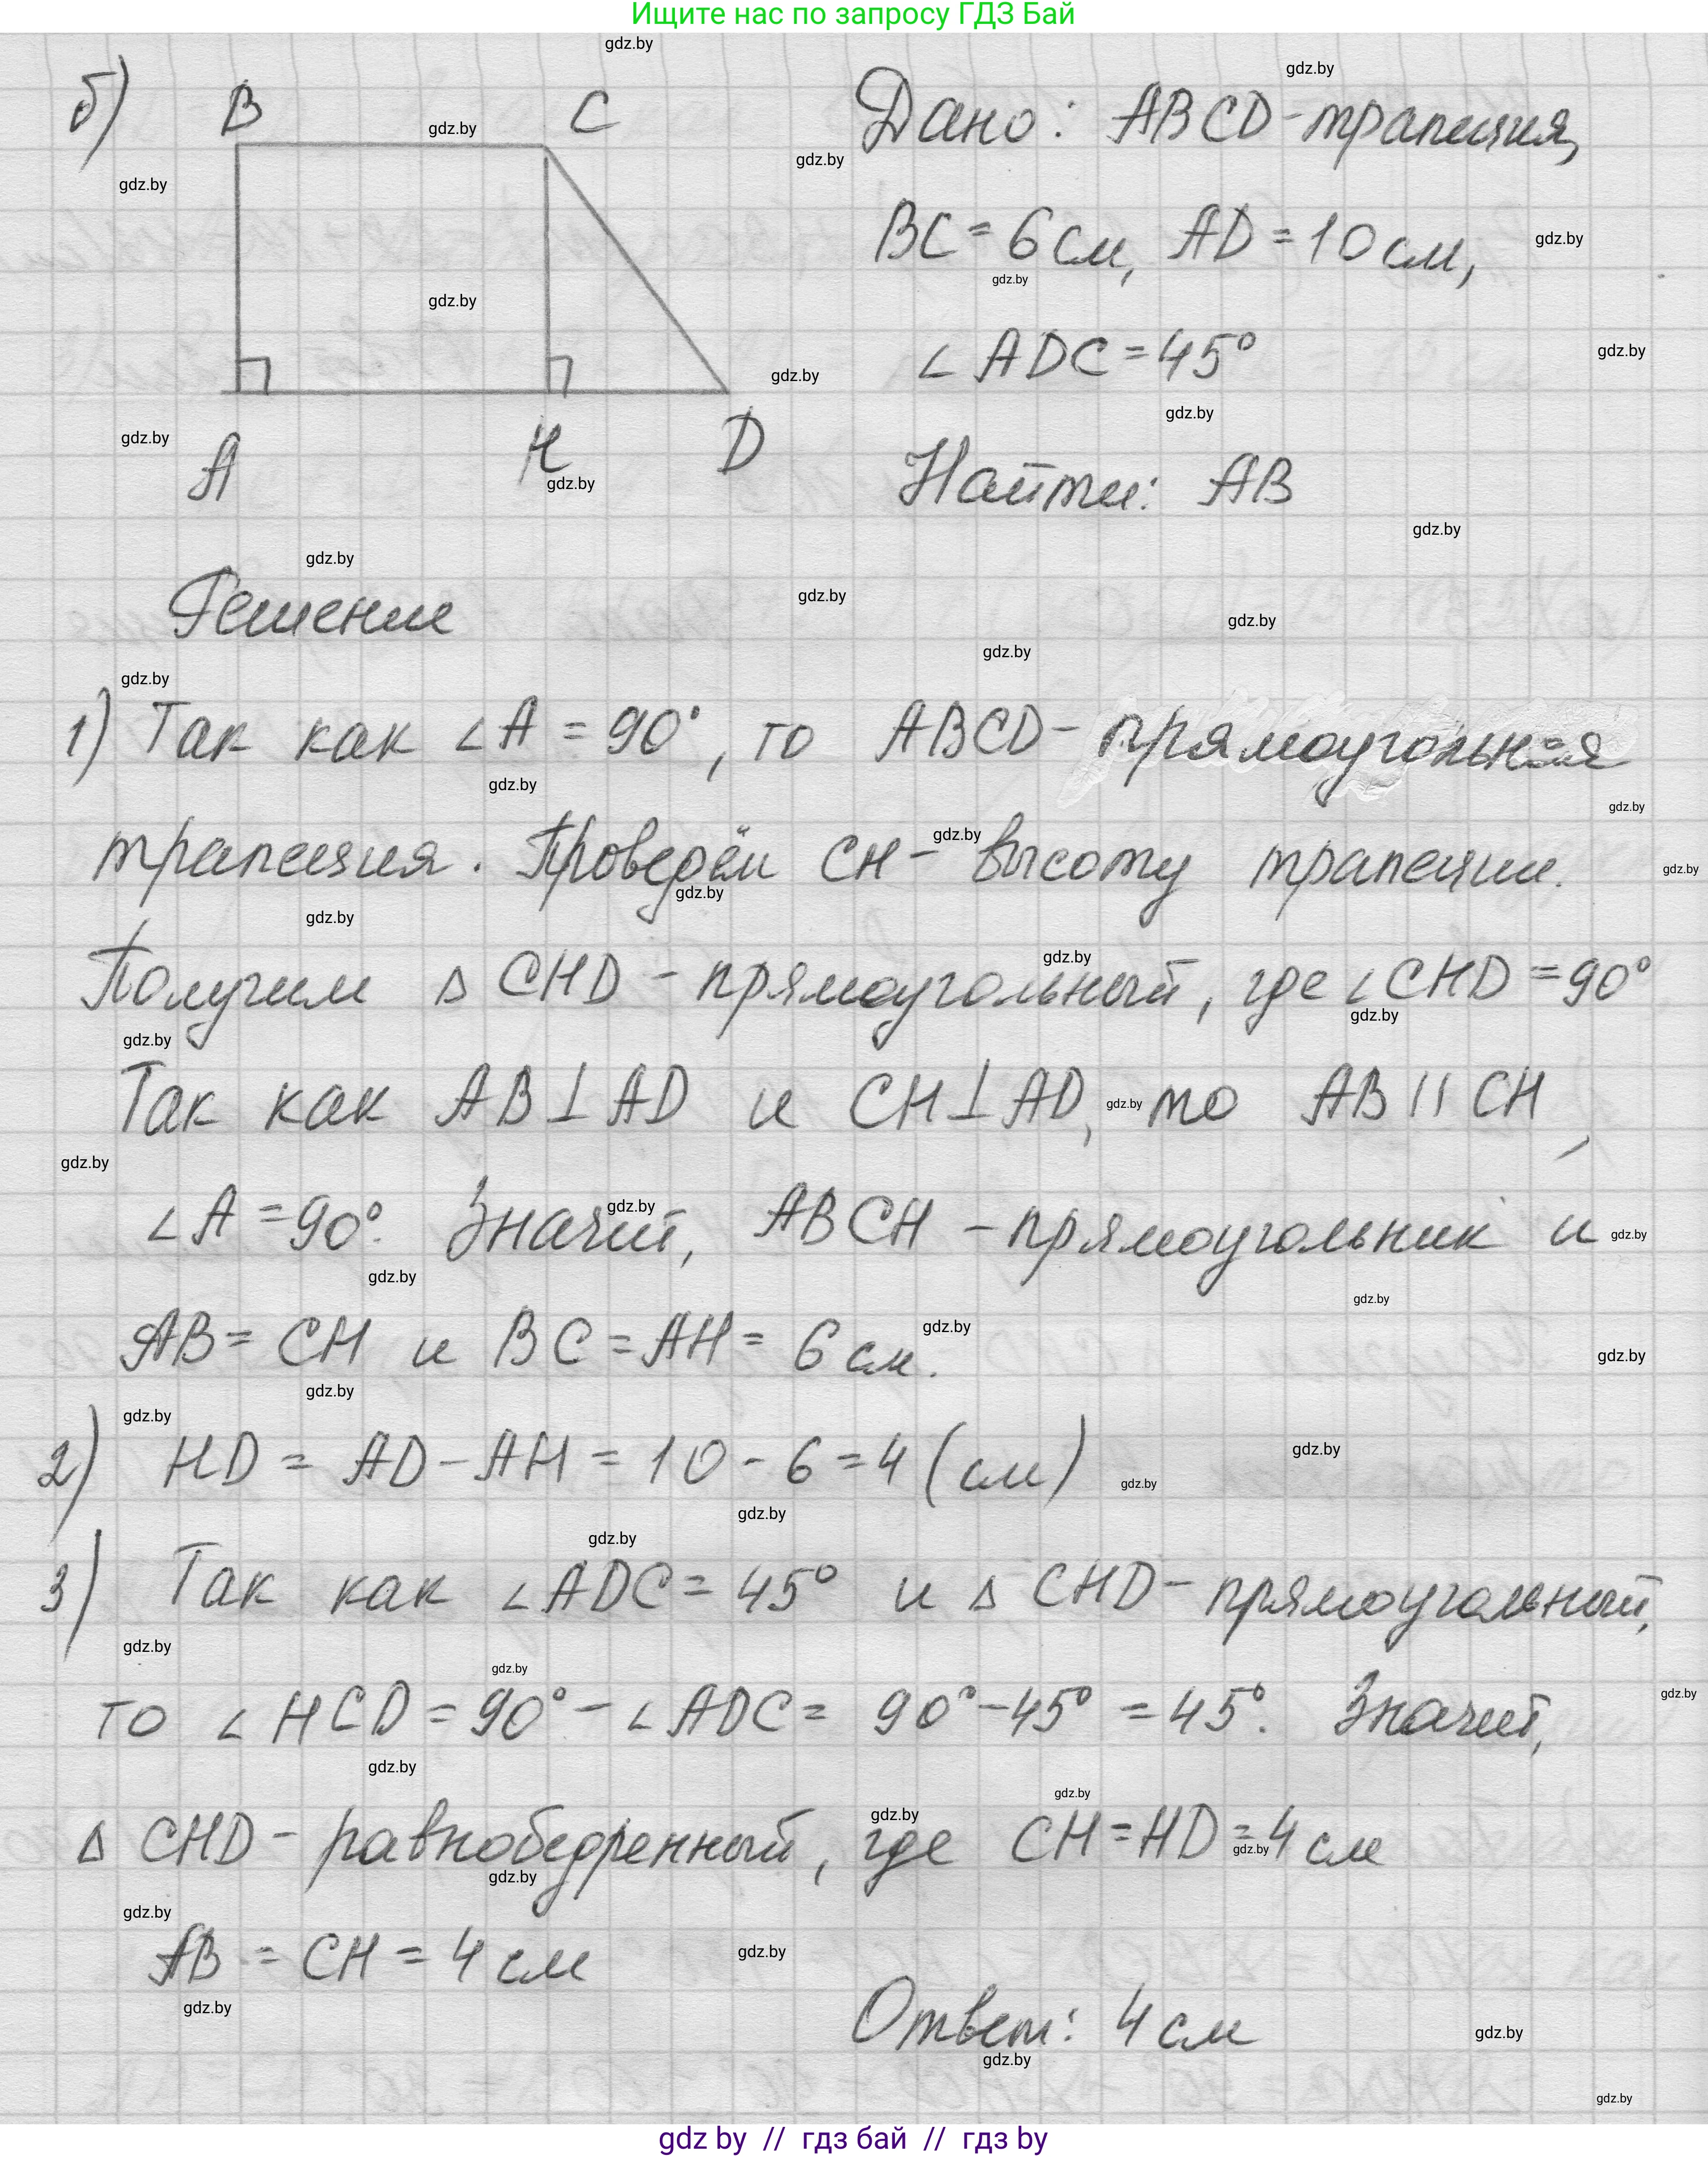 Ищите нас по запросу ГДЗ Бай
б)
B C
A H D
Дано: ABCD-трапеция,
BC = 6 см, AD = 10 см,
∠ ADC = 45°
Найти: AB
Решение
1) Так как ∠A = 90°, то ABCD - прямоугольная
трапеция. Проведём CH - высоту трапеции.
Получим Δ CHD - прямоугольный, где ∠CHD = 90°
Так как AB⊥AD и CH⊥AD, то AB || CH,
∠A = 90°. Значит, ABCH - прямоугольник и
AB = CH и BC = AH = 6 см.
2) HD = AD - AH = 10 - 6 = 4 (см)
3) Так как ∠ADC = 45° и Δ CHD - прямоугольный,
то ∠HCD = 90° - ∠ADC = 90° - 45° = 45°. Значит,
Δ CHD - равнобедренный, где CH = HD = 4 см
AB = CH = 4 см
Ответ: 4 см
gdz by // гдз бай // гдз by